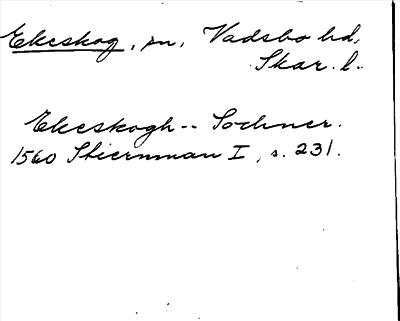 Ekeskog, sn, Vadsbo hd,
Skar. l.
Ekeskogh -- Sochner.
1560 Stiernman I, s. 231.